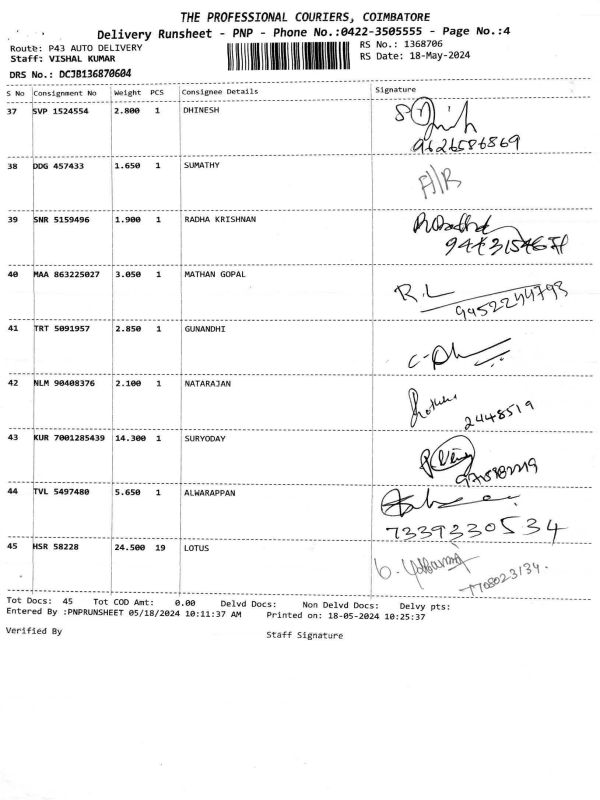 THE PROFESSIONAL COURIERS, COIMBATORE
Delivery Runsheet - PNP - Phone No.:0422-3505555 - Page No.:4
Route: P43 AUTO DELIVERY
RS No.: 1368706
Staff: VISHAL KUMAR
RS Date: 18-May-2024
DRS No.: DCJB136870604
S No Consignment No Weight PCS Consignee Details Signature
37 SVP 1524554 2.800 1 DHINESH
9626586869
38 DDG 457433 1.650 1 SUMATHY
39 SNR 5159496 1.900 1 RADHA KRISHNAN
40 MAA 863225027 3.050 1 MATHAN GOPAL
R.L
9952244793
41 TRT 5091957 2.850 1 GUNANDHI
42 NLM 90408376 2.100 1 NATARAJAN
2448519
43 KUR 7001285439 14.300 1 SURYODAY
44 TVL 5497480 5.650 1 ALWARAPPAN
7339330534
45 HSR 58228 24.500 19 LOTUS
7708023134.
Tot Docs: 45 Tot COD Amt: 0.00 Delvd Docs: Non Delvd Docs: Delvy pts:
Entered By :PNPRUNSHEET 05/18/2024 10:11:37 AM Printed on: 18-05-2024 10:25:37
Verified By
Staff Signature